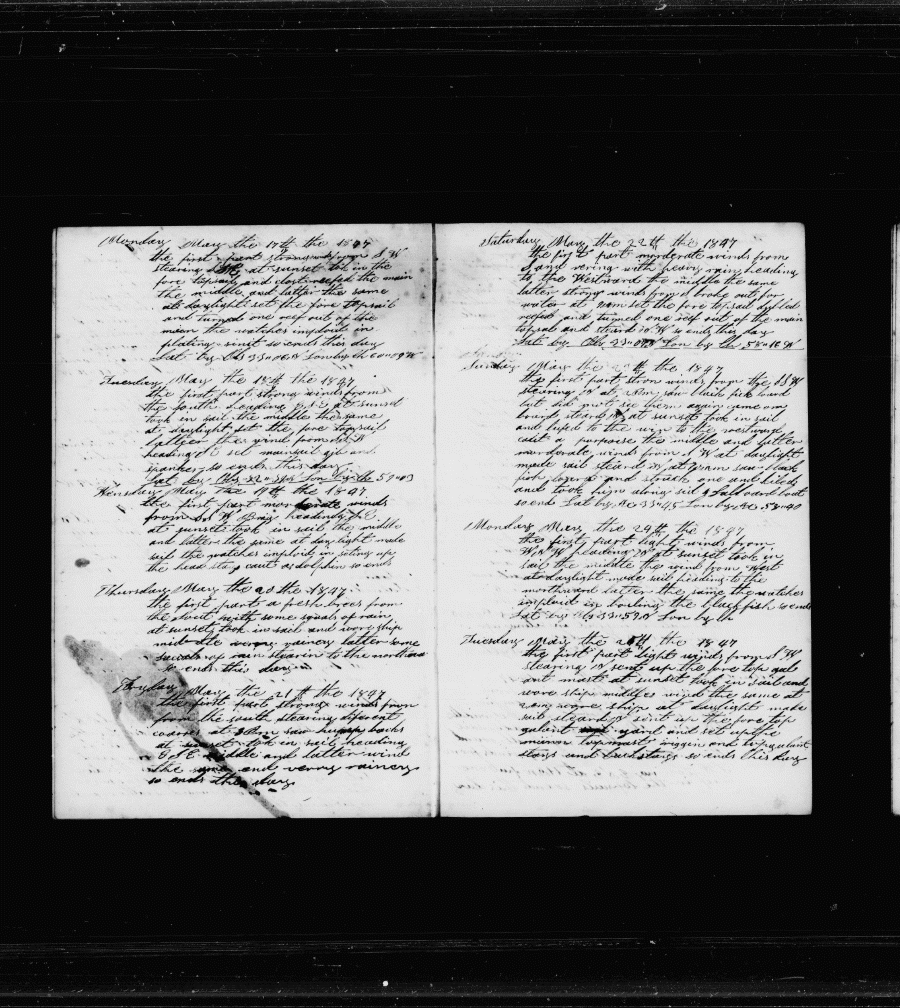 Monday May the 17th the 1847
the first part strong winds from S W
stearing at sunset tok in the
fore topsail and close reefed the main
the middle and latter the same
at daylight set the fore topsail
and turned one reef out of the
main the watches imploid in
plating sinit so ends this day
Lat by Obs 33 " 06 S Lon by Ch 60 " 09 W
Tuesday May the 18th the 1847
the first part strong winds from
the South heading E S E at sunset
took in sail the middle the same
at daylight set the fore topsail
latter the wind from
heading set mainsail gib and
spanker so ends this day
Lat by Obs Lon by Ch 59 " 03
Wensday May the 19th the 1847
the first part morderate winds
from heading
at sunset took in sail the middle
and latter the same at daylight made
sail the watches imploid in seting up
the head stays caut a dolphin so ends
Thursday May the 20 the 1847
the first part a fresh brees from
the with some squals of rain
at sunset took in sail and wore ship
middle verry rainey latter some
squals of rain stearin to the northard
so ends this day
Fryday May the 21th the 1847
the first part strong winds from
from the south stearing diferent
corses at 3 am saw backs
at sunset tok in sail heading
E S E middle and latter wind
the same and verry rainey
so ends the day
Saturday May the 22th the 1847
the first part morderate winds from
S and vering with heavy rain heading
to the Westward the middle the same
latter strong winds from S broke out for
water at set the fore topsail dobbled
reefed and turned one reef out of the main
topsal and steard N W so ends this day
Lat by Obs Lon by Ch 58 " 16 W
Sunday May the the 1847
the first part stron winds from the SSW
stearing N at saw black fish lowered
but did not see them again came on
board steard N at sunset took in sail
and lufed to the win to the westward
caut a porpoise the middle and latter
morderate winds from S W at daylight
made sail steard N at 7 am saw black
fish lowered and struck one and killed
and took him along sid Labboard boat
so end Lat by Obs 33 " 45 Lon by Obs 58 " 40
Monday May the 24th the 1847
the first part light winds from
W N W heading N at sunset took in
sail the middle the wind from West
at daylight made sail heading to the
northward latter the same the watches
imploid in boiling the blackfish so ends
Lat by Obs 33 " 59 S Lon by Ch
Tuesday May the 25th the 1847
the first part light winds from S W
stearing N sent up the fore top gal
ant mast at sunset took in sail and
wore ship middles wind the same at
wore ship at daylight made
sail steard N sent up the fore top
galant yard and set up the
topmast riggen and topgalant
stays and backstays so ends this day